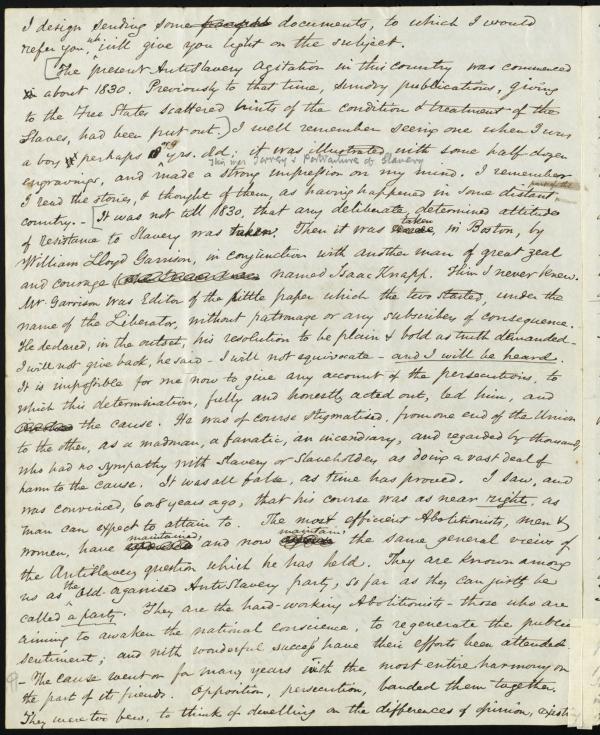 I design sending some documents, to which I would
refer you, wh will give you light on the subject.
[The present AntiSlavery Agitation in this country was commenced
about 1830. Previously to that time, sundry publications, giving
to the Free States scattered hints of the condition & treatment of the
Slaves, had been put out.) I well remember seeing one when I was
a boy perhaps 9 yrs. old; it was illustrated with some half dozen
This was Torrey's Portraiture of Slavery
engravings, and made a strong impression on my mind. I remember
part of the
I read the stories, & thought of them, as having happened in some distant
country. - [It was not till 1830, that any deliberate, determined attitude
taken
of resistance to Slavery was taken. Then it was made, in Boston, by
William Lloyd Garrison, in conjunction with another man of great zeal
and courage named Isaac Knapp. Him I never knew.
Mr. Garrison was Editor of the little paper which the two started, under the
name of the Liberator, without patronage or any subscribers of consequence.
He declared, in the outset, his resolution to be plain & bold as truth demanded -
I will not give back, he said - I will not equivocate - and I will be heard.
It is impossible for me now to give any account of the persecutions, to
which this determination, fully and honestly acted out, led him, and
the cause. He was of course stigmatised, from one end of the Union
to the other, as a madman, a fanatic, an incendiary, and regarded by thousands
who had no sympathy with Slavery or Slaveholders, as doing a vast deal of
harm to the cause. It was all false, as time has proved. I saw, and
was convinced, 6 or 8 years ago, that his course was as near right, as
man can expect to attain to. The most efficient Abolitionists, men &
maintained, maintain
women, have and now the same general views of
the AntiSlavery question which he has held. They are known among
us as the Old-organised AntiSlavery party, so far as they can justly be
called a party. They are the hard-working Abolitionists - those who are
aiming to awaken the national conscience, to regenerate the public
sentiment; and with wonderful success have their efforts been attended.
- The cause went on for many years with the most entire harmony on
the part of its friends. Opposition, persecution, banded them together.
They were too few, to think of dwelling on the differences of opinion,